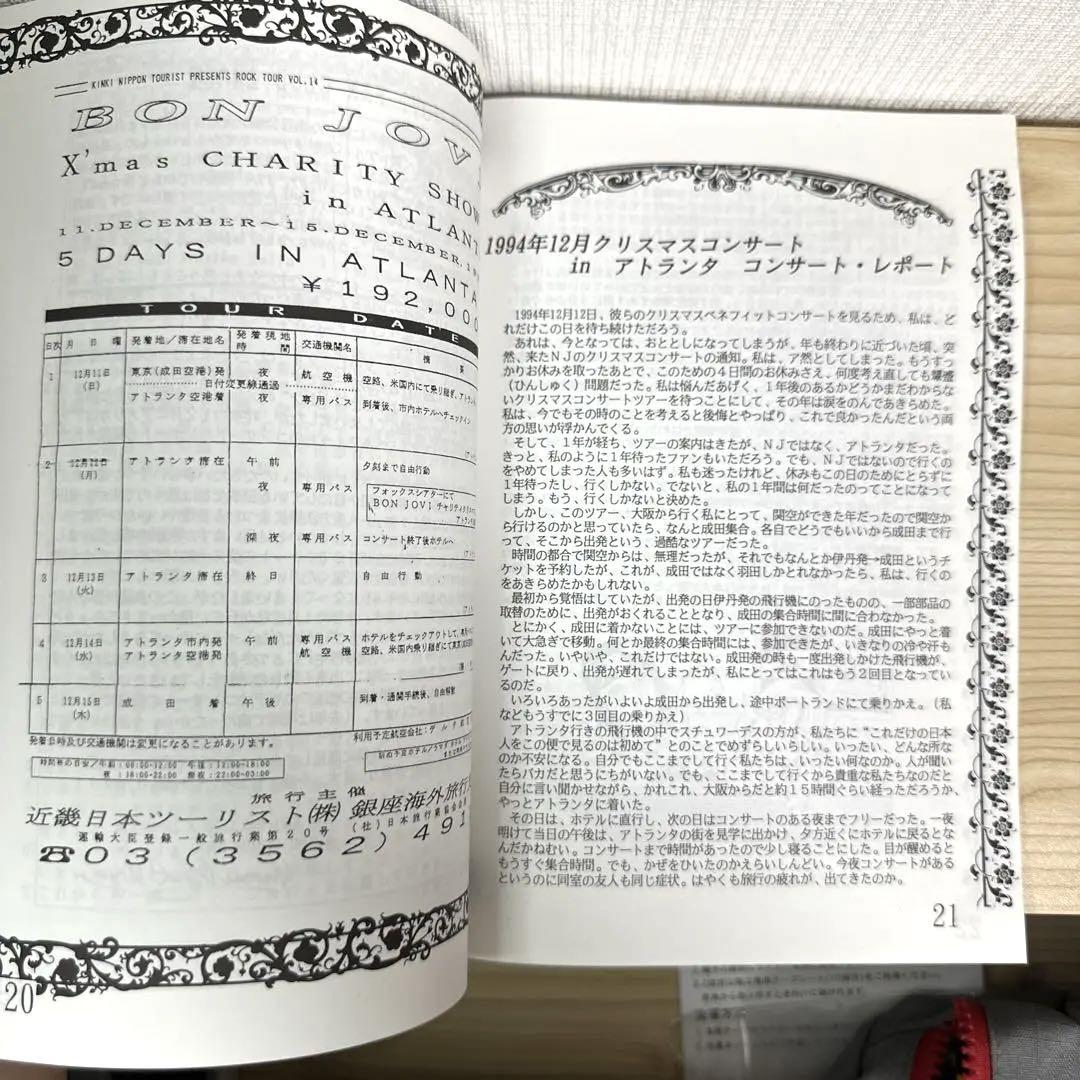 KINKI NIPPON TOURIST PRESENTS ROCK TOUR VOL.14
BON JOV
X'mas CHARITY SHOW
in ATLANT
11.DECEMBER～15.DECEMBER,19
5 DAYS IN ATLANTA
￥192,000
TOUR DATE
日次 月 日 曜 発着地／滞在地名 発着現地時間 交通機関名 摘 要
1 12月11日(日) 東京(成田空港)発 夜 航空機 空路、米国内にて乗り継ぎ、アトラン
日付変更線通過
アトランタ空港着 夜 専用バス 到着後、市内ホテルへチェックイン
2 12月12日(月) アトランタ滞在 午前 夕刻まで自由行動
夜 専用バス フォックスシアターにて
BON JOVI チャリティ
深夜 専用バス コンサート終了後ホテルへ
3 12月13日(火) アトランタ滞在 終日 自由行動
4 12月14日(水) アトランタ市内発 午前 専用バス ホテルをチェックアウトして、
アトランタ空港発 航空機 空路、米国内乗り継ぎにて東京
5 12月15日(木) 成田着 午後 到着・通関手続後、自由解散
発着日時及び交通機関は変更になることがあります。
利用予定航空会社：デルタ
時間帯の目安／午前：08:00-12:00 午後：12:00-18:00
夜：18:00-22:00 深夜：22:00-03:00
旅行主催
近畿日本ツーリスト(株)銀座海外旅行
運輸大臣登録一般旅行業第20号 (社)日本旅行業協会
☎03(3562)491
20
1994年12月クリスマスコンサート
in アトランタ コンサート・レポート
1994年12月12日、彼らのクリスマスベネフィットコンサートを見るため、私は、ど
れだけこの日を待ち続けただろう。
あれは、今となっては、おととしになってしまうが、年も終わりに近づいた頃、突
然、来たＮＪのクリスマスコンサートの通知。私は、ア然としてしまった。もうすっ
かりお休みを取ったあとで、このための４日間のお休みさえ、何度考え直しても顰蹙
（ひんしゅく）問題だった。私は悩んだあげく、１年後のあるかどうかまだわからな
いクリスマスコンサートツアーを待つことにして、その年は涙をのんであきらめた。
私は、今でもその時のことを考えると後悔とやっぱり、これで良かったんだという両
方の思いが浮かんでくる。
そして、１年が経ち、ツアーの案内はきたが、ＮＪではなく、アトランタだった。
きっと、私のように１年待ったファンもいただろう。でも、ＮＪではないので行くの
をやめてしまった人も多いはず。私も迷ったけれど、休みもこの日のためにとらずに
１年待ったし、行くしかない。でないと、私の１年間は何だったのってことになって
しまう。もう、行くしかないと決めた。
しかし、このツアー、大阪から行く私にとって、関空ができた年だったので関空か
ら行けるのかと思っていたら、なんと成田集合。各自でどうでもいいから成田まで行
って、そこから出発という、過酷なツアーだった。
時間の都合で関空からは、無理だったが、それでもなんとか伊丹発→成田というチ
ケットを予約したが、これが、成田ではなく羽田しかとれなかったら、私は、行くの
をあきらめたかもしれない。
最初から覚悟はしていたが、出発の日伊丹発の飛行機にのったものの、一部部品の
取替のために、出発がおくれることとなり、成田の集合時間に間に合わなかった。
とにかく、成田に着かないことには、ツアーに参加できないのだ。成田にやっと着
いて大急ぎで移動。何とか最終の集合時間には、参加できたが、いきなりの冷や汗も
んだった。いやいや、これだけではない。成田発の時も一度出発しかけた飛行機が、
ゲートに戻り、出発が遅れてしまったが、私にとってはこれはもう２回目となってい
るのだ。
いろいろあったがいよいよ成田から出発し、途中ポートランドにて乗りかえ。（私
などもうすでに３回目の乗りかえ）
アトランタ行きの飛行機の中でスチュワーデスの方が、私たちに“これだけの日本
人をこの便で見るのは初めて”とのことでめずらしいらしい。いったい、どんな所な
のか不安になる。自分でもここまでして行く私たちは、いったい何なのか。人が聞い
たらバカだと思うにちがいない。でも、ここまでして行くから貴重な私たちなのだと
自分に言い聞かせながら、かれこれ、大阪からだと約１５時間ぐらい経っただろうか、
やっとアトランタに着いた。
その日は、ホテルに直行し、次の日はコンサートのある夜までフリーだった。一夜
明けて当日の午後は、アトランタの街を見学に出かけ、夕方近くにホテルに戻るとな
んだかねむい。コンサートまで時間があったので少し寝ることにした。目が醒めると
もうすぐ集合時間。でも、かぜをひいたのかえらいしんどい。今夜コンサートがある
というのに同室の友人も同じ症状。はやくも旅行の疲れが、出てきたのか。
21